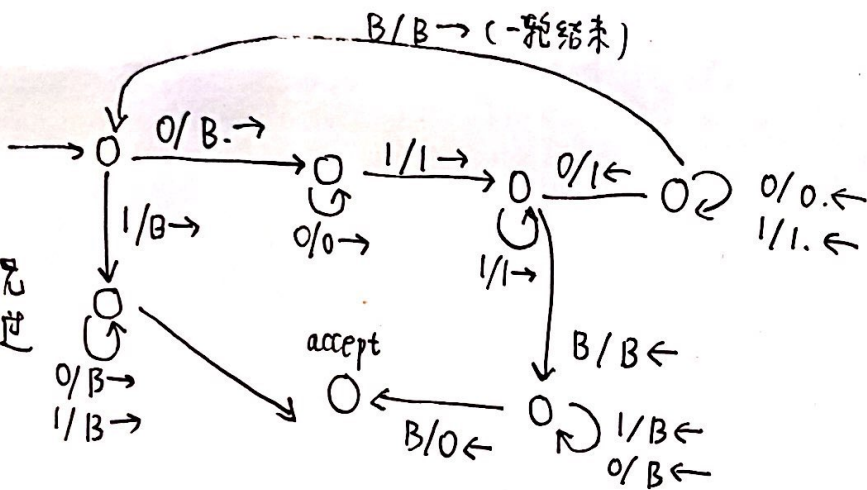 B/B→ (一轮结束)
0/B.→
1/1→
0/1←
0/0.←
1/1.←
0/0→
1/B→
1/1→
accept
B/B←
0/B→
1/B→
B/0←
1/B←
0/B←